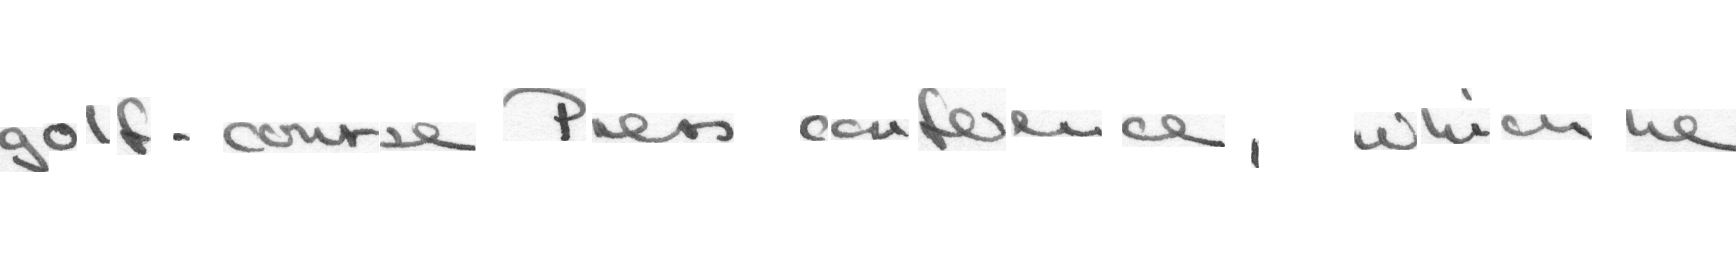 golf-course Press conference, which he